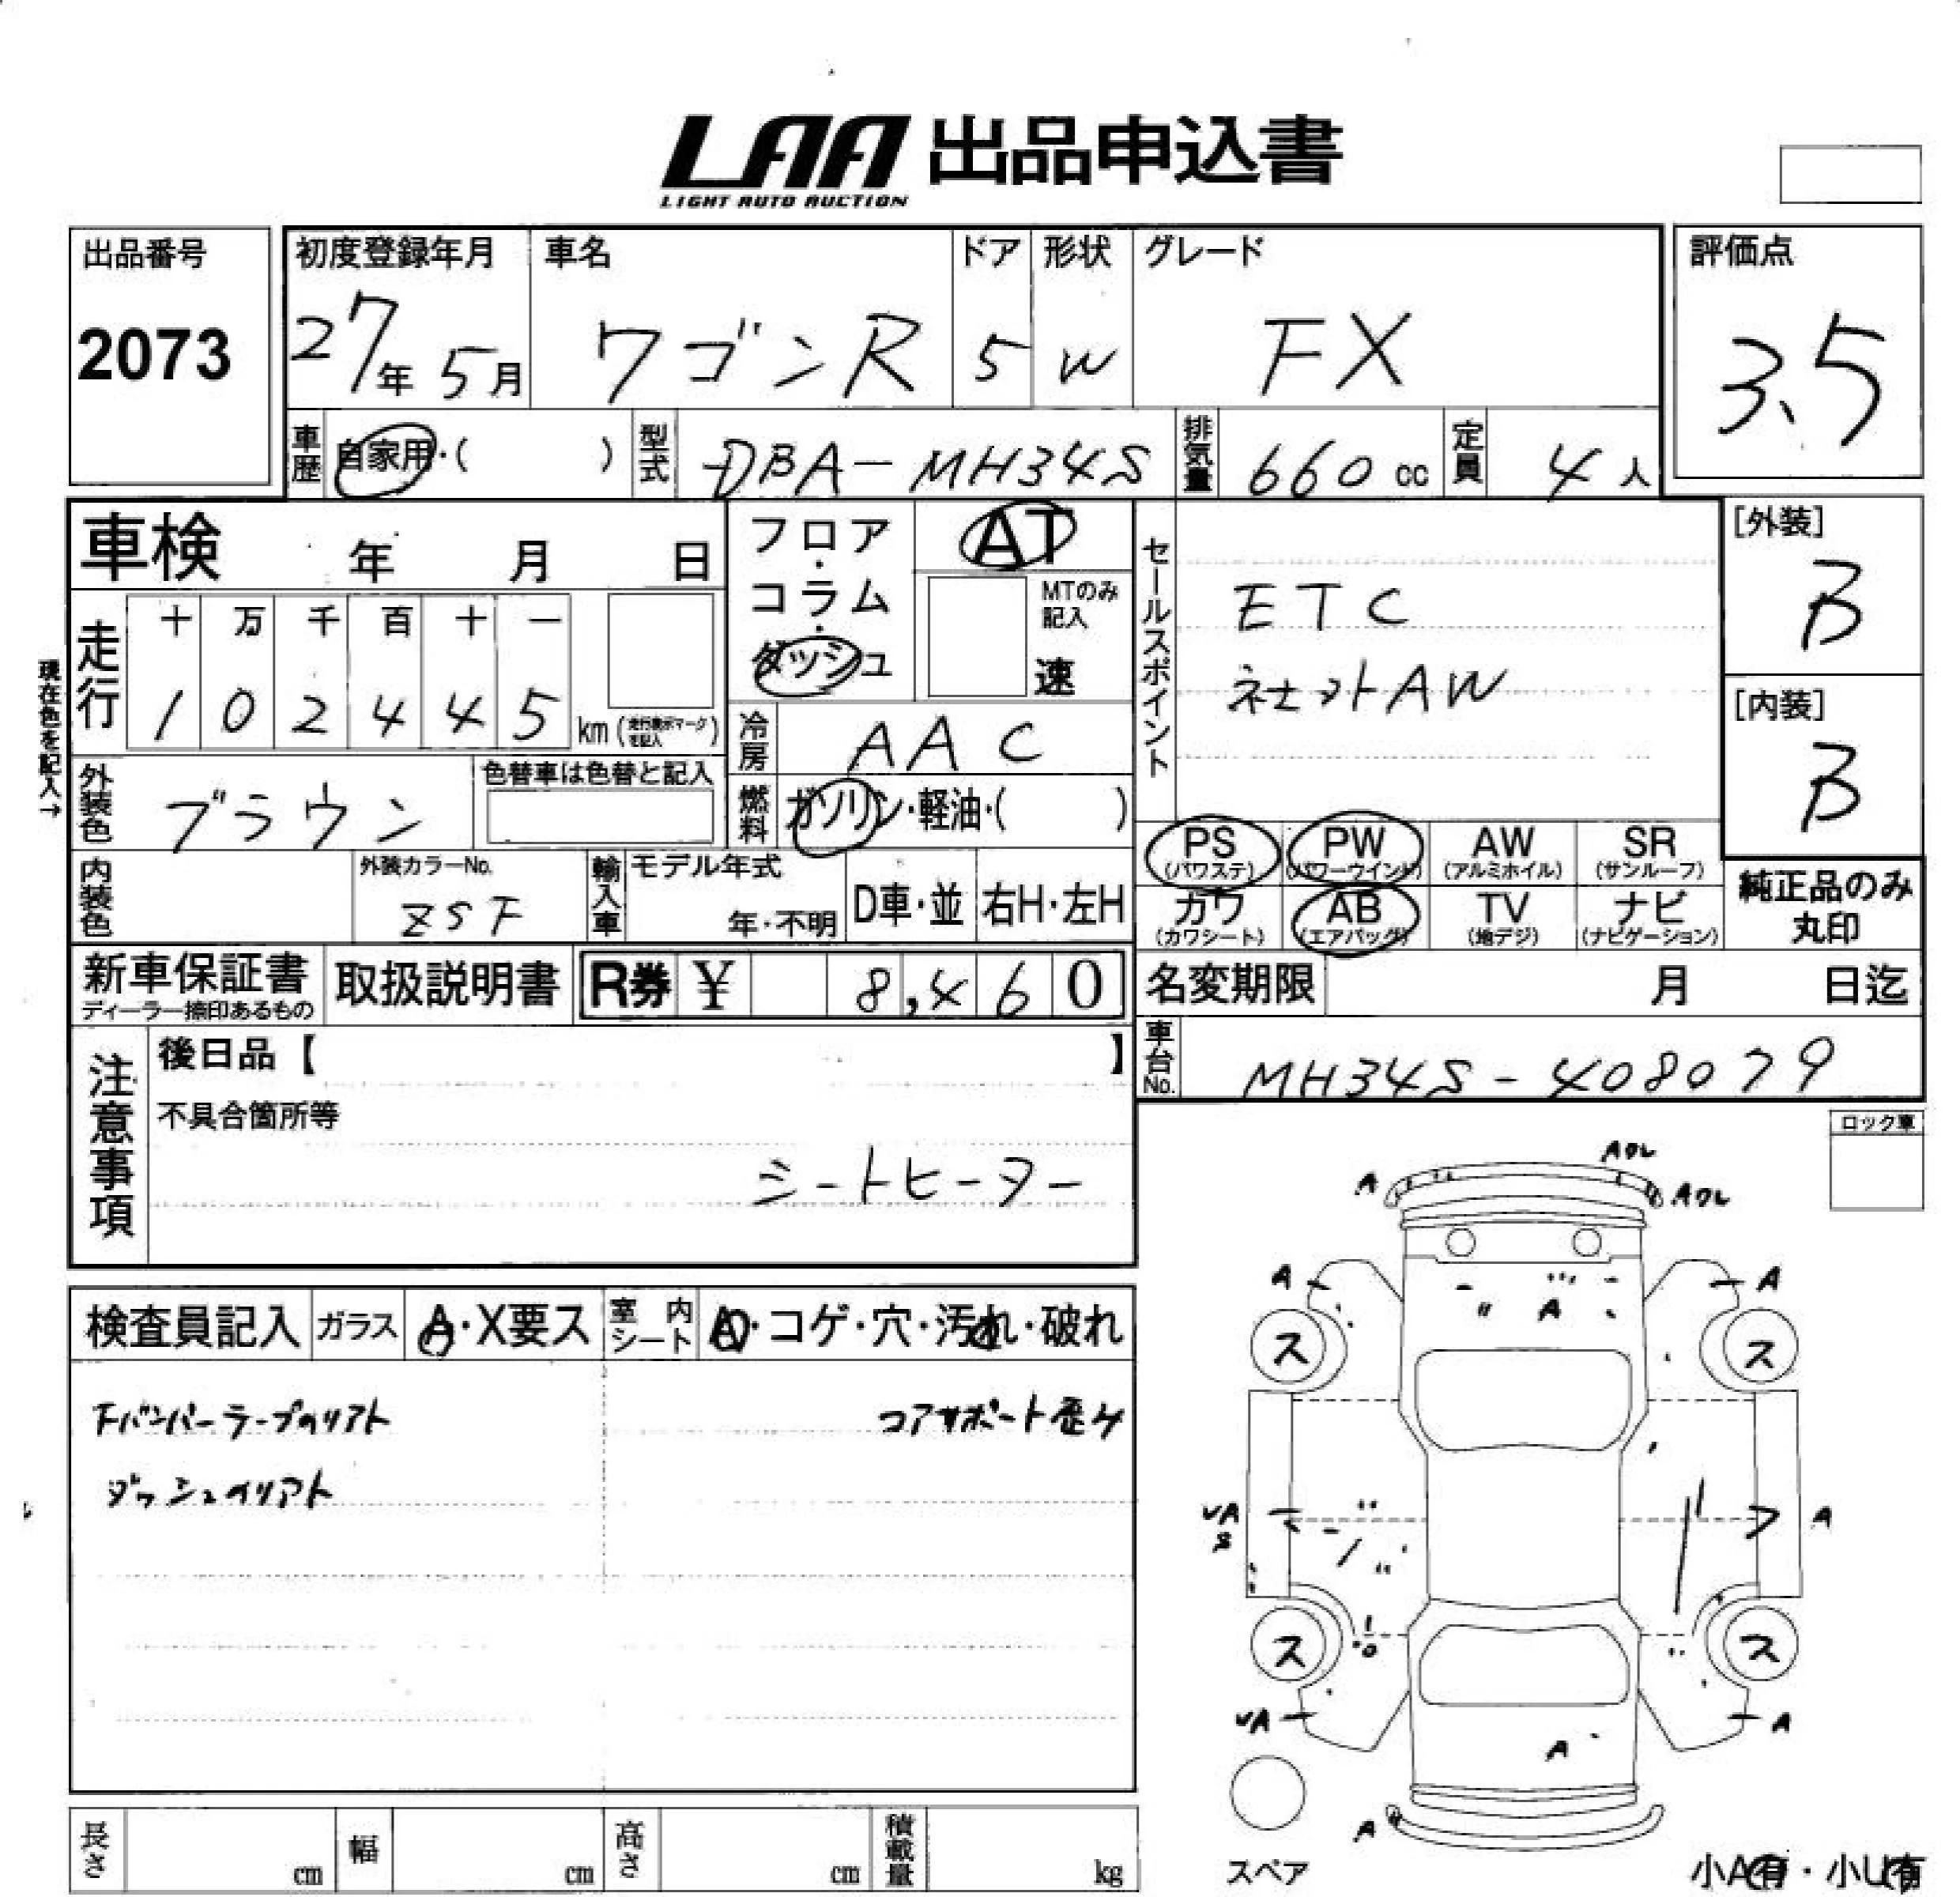 LAA 出品申込書
LIGHT AUTO AUCTION
出品番号
2073
初度登録年月
27年5月
車名
ワゴンR
ドア
5
形状
W
グレード
FX
評価点
3.5
車歴
自家用・( )
型式
DBA-MH34S
排気量
660 cc
定員
4人
車検 年 月 日
フロア・コラム・ダッシュ
AT
MTのみ記入
速
セールスポイント
ETC
ネセットAW
[外装]
B
[内装]
B
現在色を記入→
走行
十 万 千 百 十 一
1 0 2 4 4 5
km(走行表示マークを記入)
冷房
AAC
外装色
ブラウン
色替車は色替と記入
燃料
ガソリン・軽油・( )
PS
(パワステ)
PW
(パワーウインド)
AW
(アルミホイル)
SR
(サンルーフ)
カワ
(カワシート)
AB
(エアバッグ)
TV
(地デジ)
ナビ
(ナビゲーション)
純正品のみ
丸印
内装色
外装カラーNo.
ZSF
輸入車
モデル年式
年・不明
D車・並
右H・左H
新車保証書
ディーラー捺印あるもの
取扱説明書
R券 ¥ 8,460
名変期限 月 日迄
車台No.
MH34S-408079
注意事項
後日品【 】
不具合箇所等
シートヒーター
ロック車
検査員記入
ガラス
A・X要ス
室内シート
A・コゲ・穴・汚れ・破れ
コアサポート歪み
A
A
A
A
A
ス
ス
A
ス
ス
A
A
A
スペア
小A有・小U有
長さ cm
幅 cm
高さ cm
積載量 kg